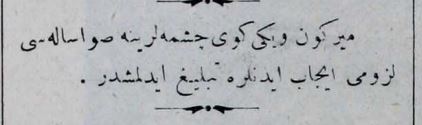 میركون ویكی كوی چشمه‌لرینه صو اساله‌سی
لزومی ایجاب ایدنلره تبلیغ ایدلمشدر .